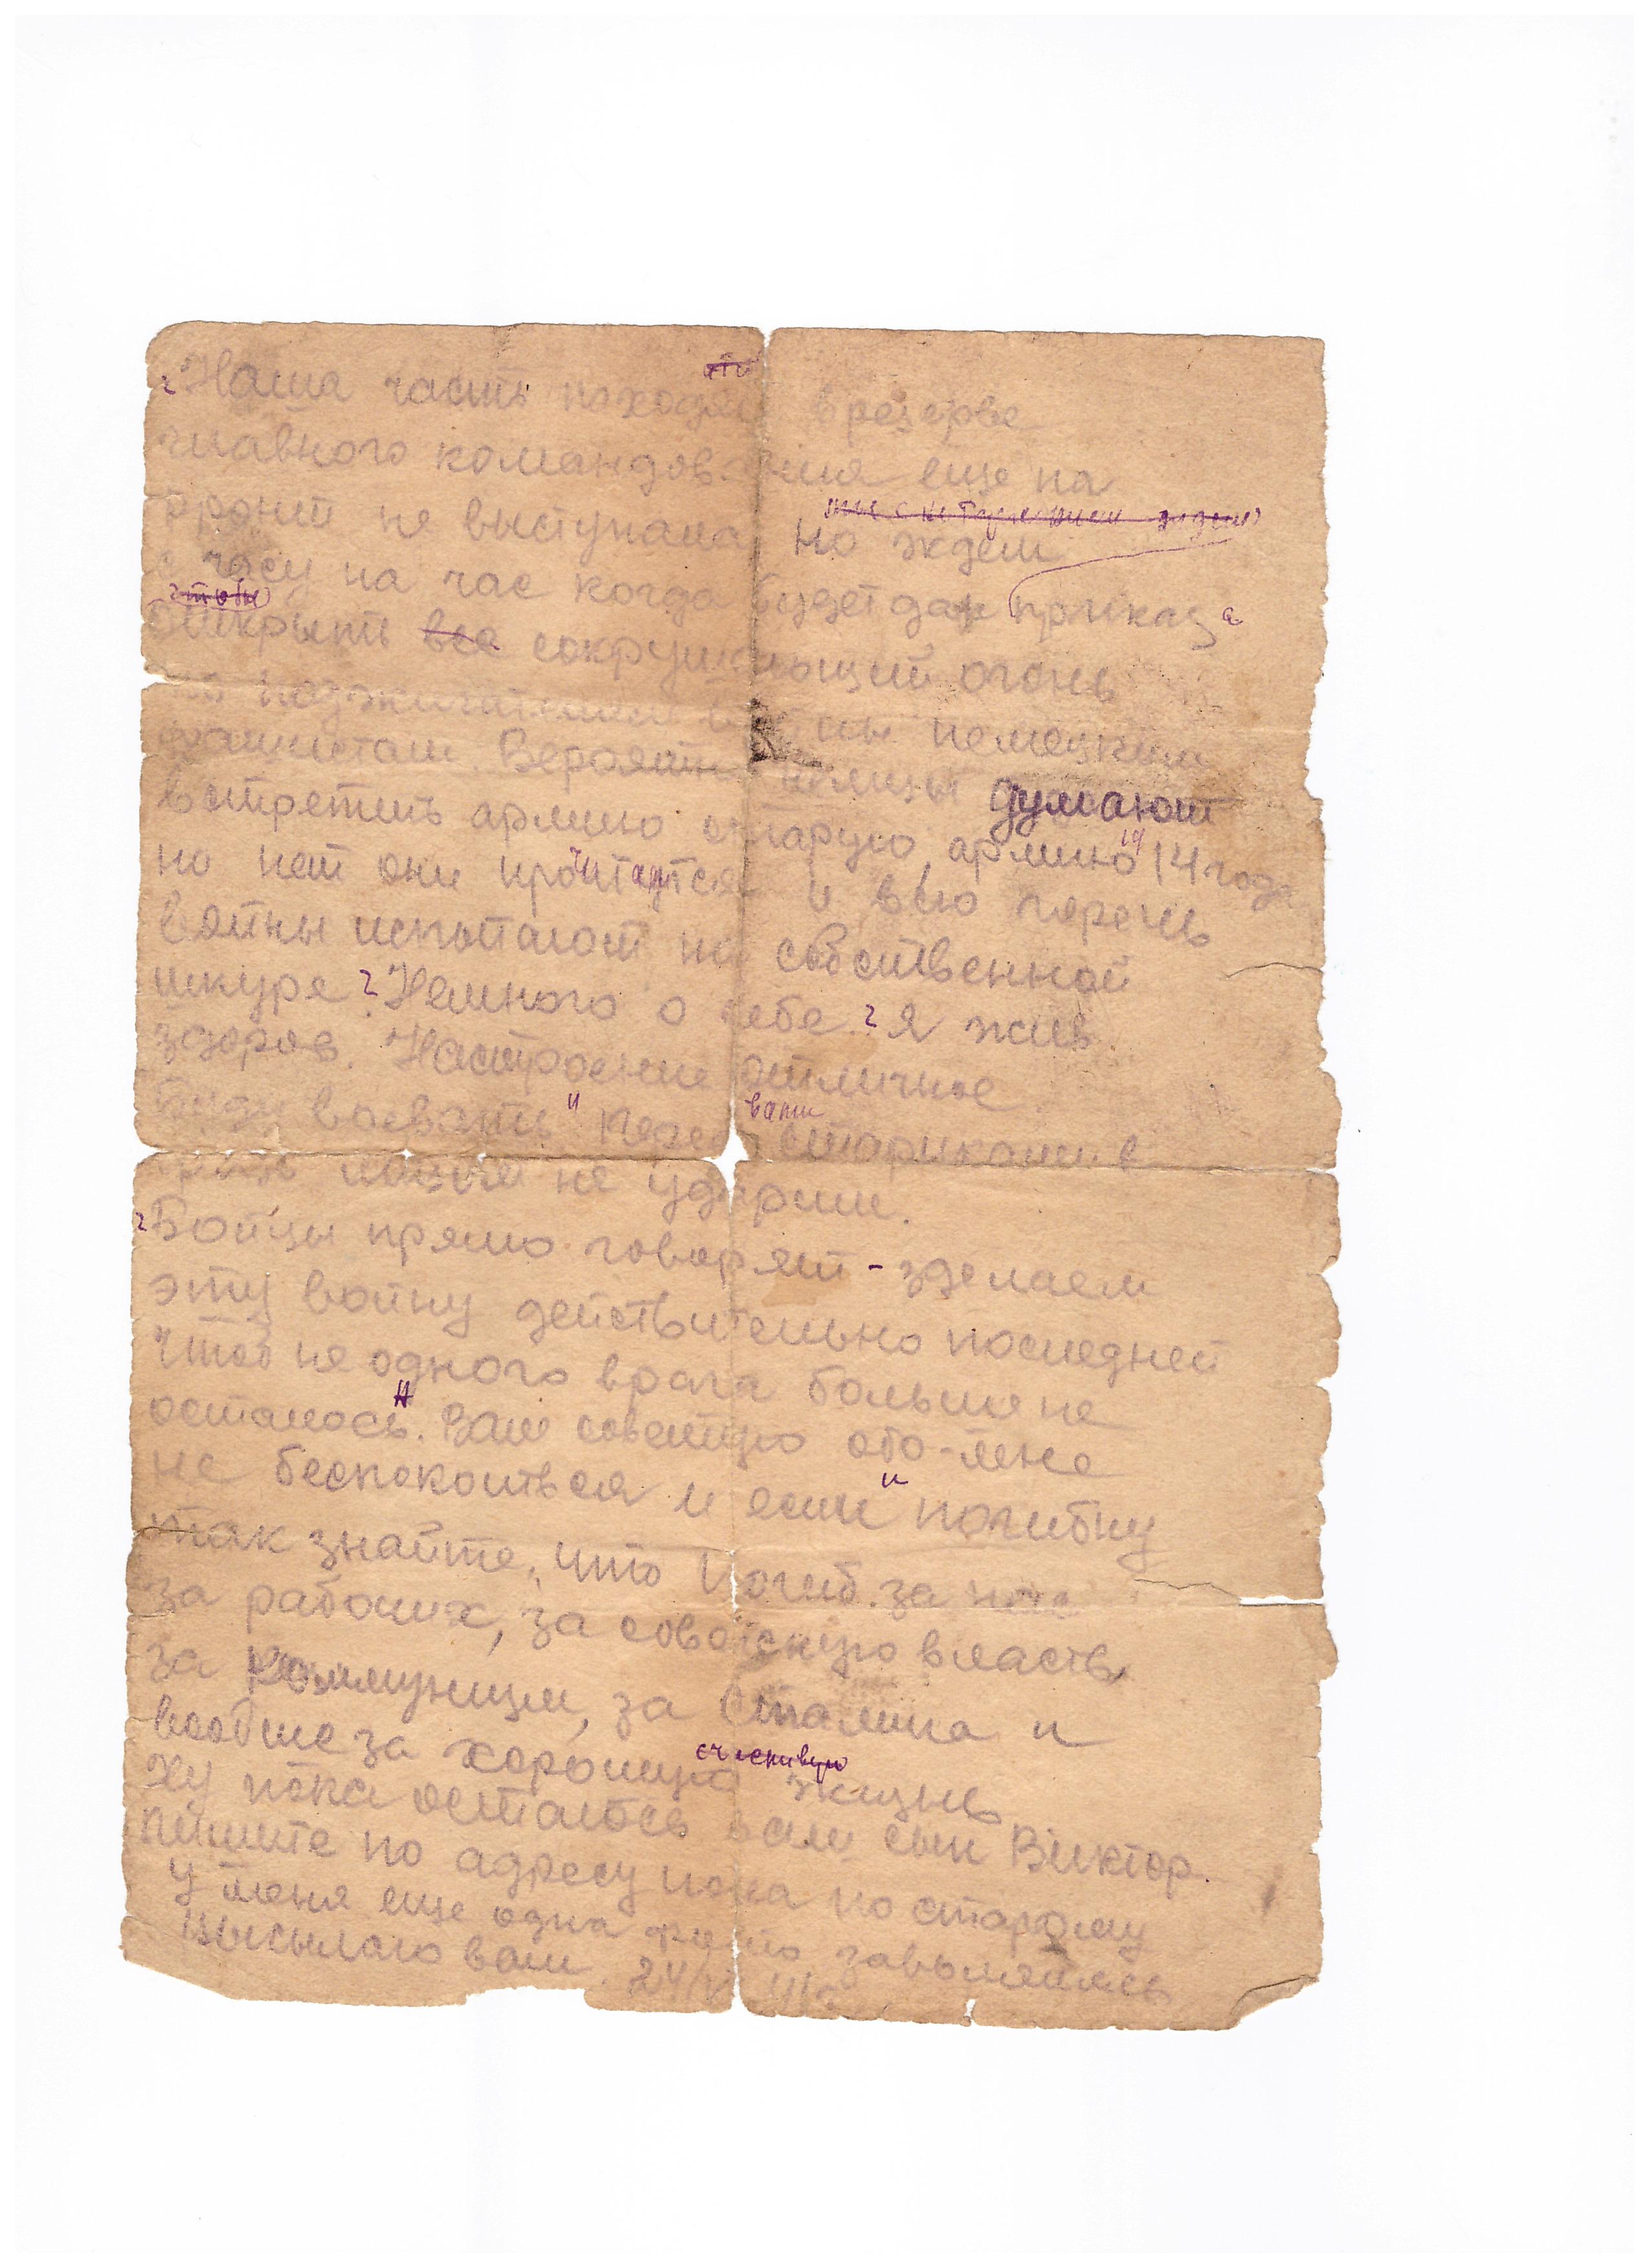 Наша часть находи в резерве
главного командования еще на
фронт не выступала но ждем
с часу на час когда будет дан приказ
открыть все сокрушающий огонь
по поджигателям войны немецким
фашистам. Вероятно немцы думают
встретить армию старую, армию 14 года
но нет они просчитаются и всю горечь
войны испытают на собственной
шкуре. Немного о себе. Я жив
здоров. Настроение отличное
Буду воевать и перед вами стариками в
грязь лицом не ударим.
Бойцы прямо говорят - зделаем
эту войну действительно последней
Чтоб не одного врага больше не
осталось. Вам советую обо-мне
не беспокоиться и если и погибну
так знайте, что погиб за
за рабочих, за советскую власть,
за коммунизм, за Сталина и
вообще за хорошую счастливую жизнь
Ну пока остаюсь ваш сын Виктор.
пишите по адресу пока по старому
У меня еще одна фото завалялась
высылаю вам. 24/